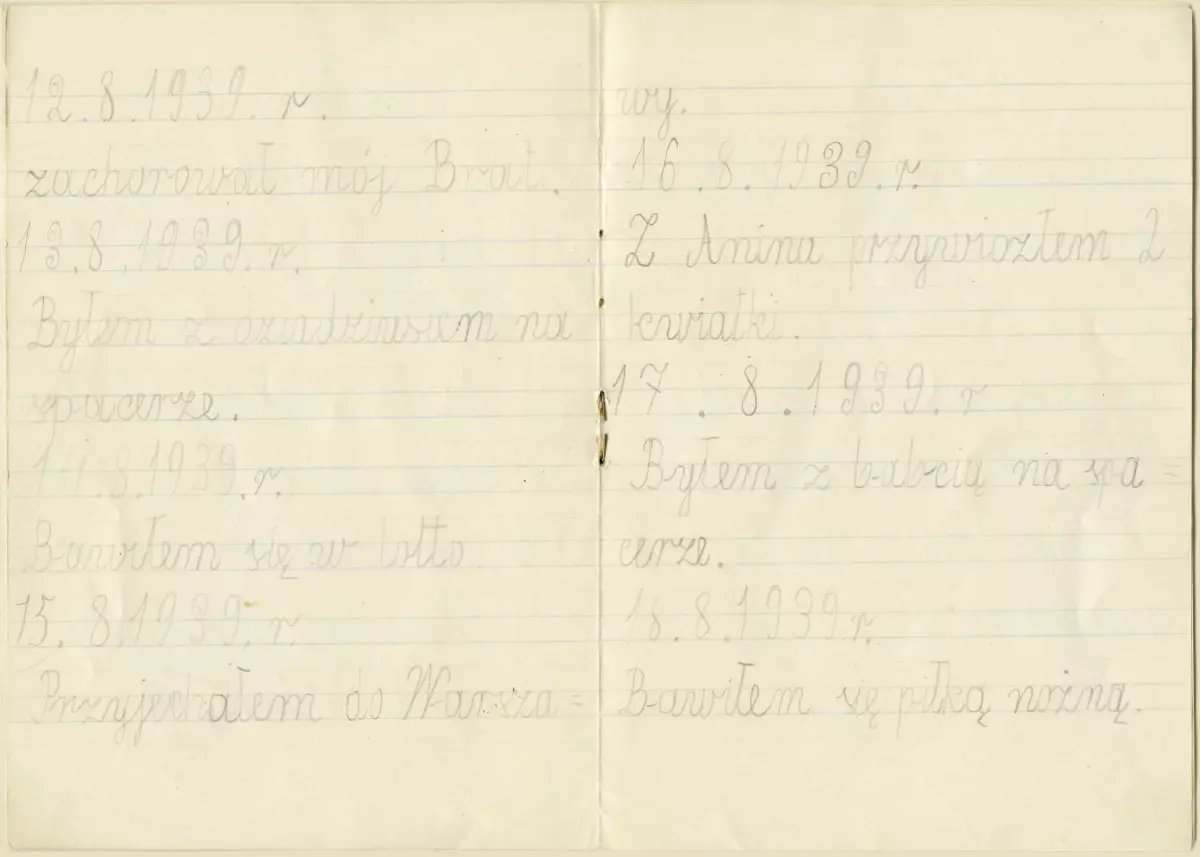 12.8.1939.r.
zachorował mój Brat.
13.8.1939.r.
Byłem z dziadziusiem na
spacerze.
14.8.1939.r.
Bawiłem się w lotto
15.8.1939.r.
Przyjechałem do Warsza=
wy.
16.8.1939.r.
Z Anina przywiozłem 2
kwiatki.
17.8.1939.r
Byłem z babcią na spa=
cerze.
18.8.1939r.
Bawiłem się piłką nożną.